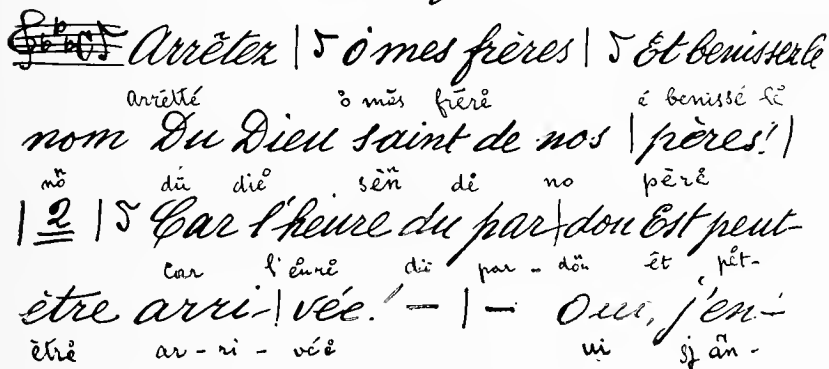 Arrêtez | ô mes frères | Et benissez le
arrêtté ô mês frérė é benissé lė
nom Du Dieu saint de nos | pères! |
nȯ̃ dü diė sèñ dė no pèrė
| 2 | Car l'heure du par | don Est peut-
Car l'ėurė dü par - dȯ̃n êt pėt-
être arri- | vée! - | - Oui, j'en-
êtrė ar - ri - véė ui sj ãn -